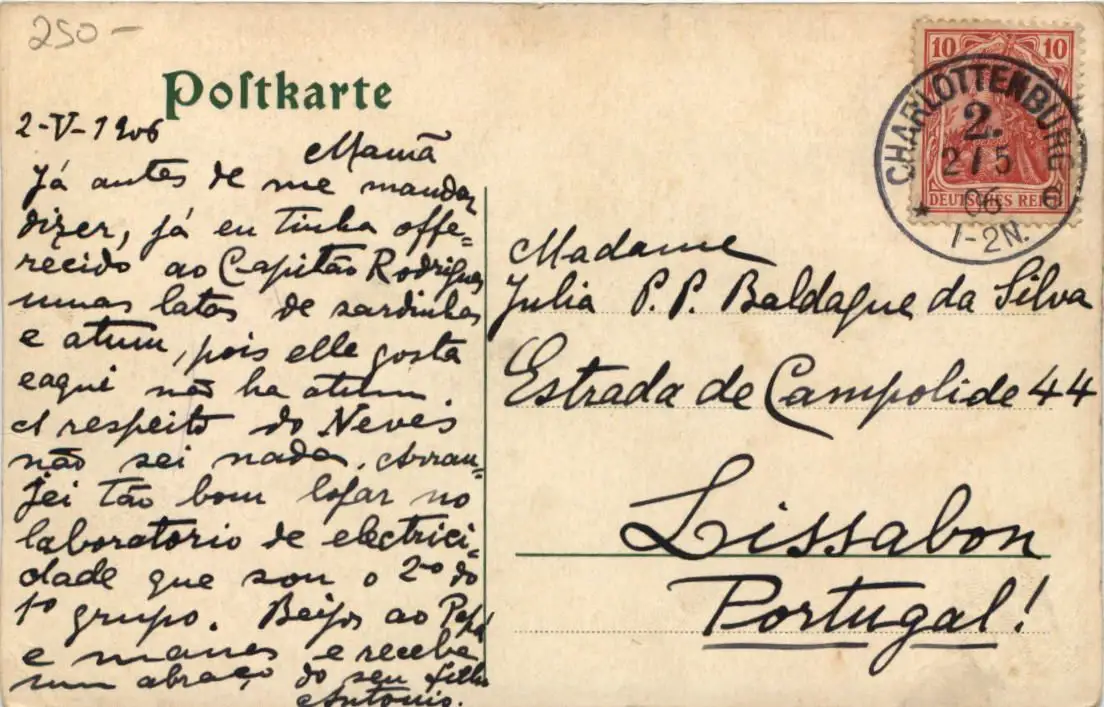 250-
Postkarte
2-V-1906
Mamã
Já antes de me mandar
dizer, já eu tinha offe=
recido ao Capitão Rodrigues
umas latas de sardinhas
e atum, pois elle gosta
e aqui não ha atum.
A respeito do Neves
não sei nada. Arran=
jei tão bom logar no
laboratorio de electrici=
dade que sou o 2º do
1º grupo. Beijos ao Papá
e manes e receba
um abraço do seu filho
Antonio.
10 10
DEUTSCHES REICH
CHARLOTTENBURG
2.
2/5
06
1-2N.
e
Madame
Julia P. P. Baldaque da Silva
Estrada de Campolide 44
Lissabon
Portugal!